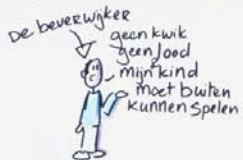 De beverwijker
geen kwik
geen lood
mijn kind
moet buiten
kunnen spelen